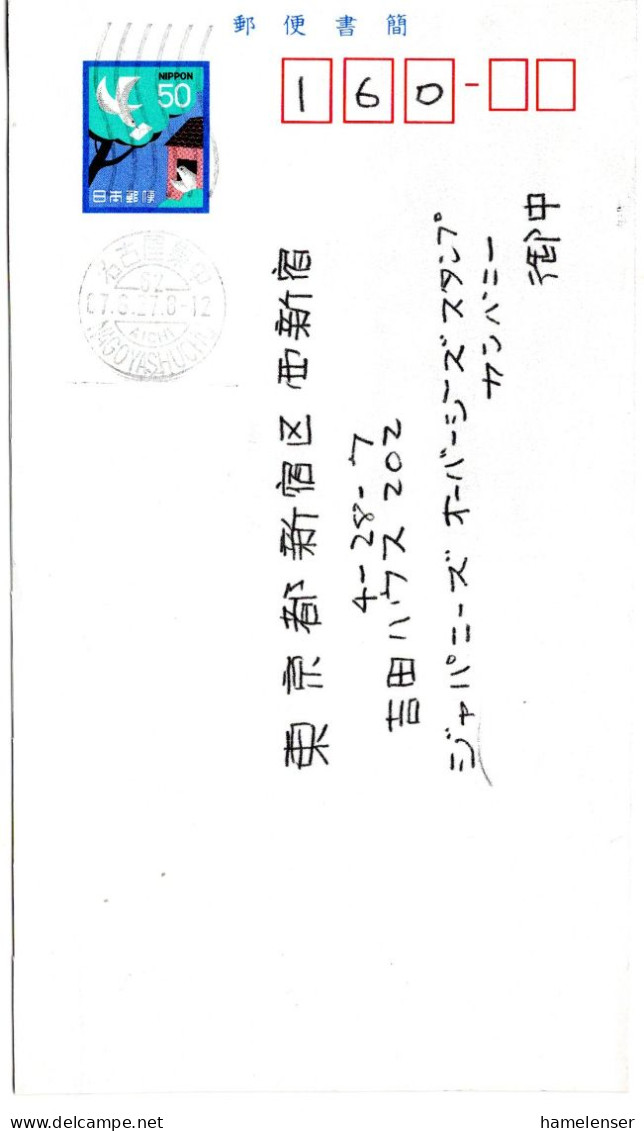 郵便書簡
NIPPON
50
日本郵便
160
名古屋集中
62
AICHI
NAGOYASHUCHU
東京都新宿区西新宿
4-28-7
吉田ハウス202
ジャパニーズオーバーシーズスタンプ
カンパニー
御中
hamelenser